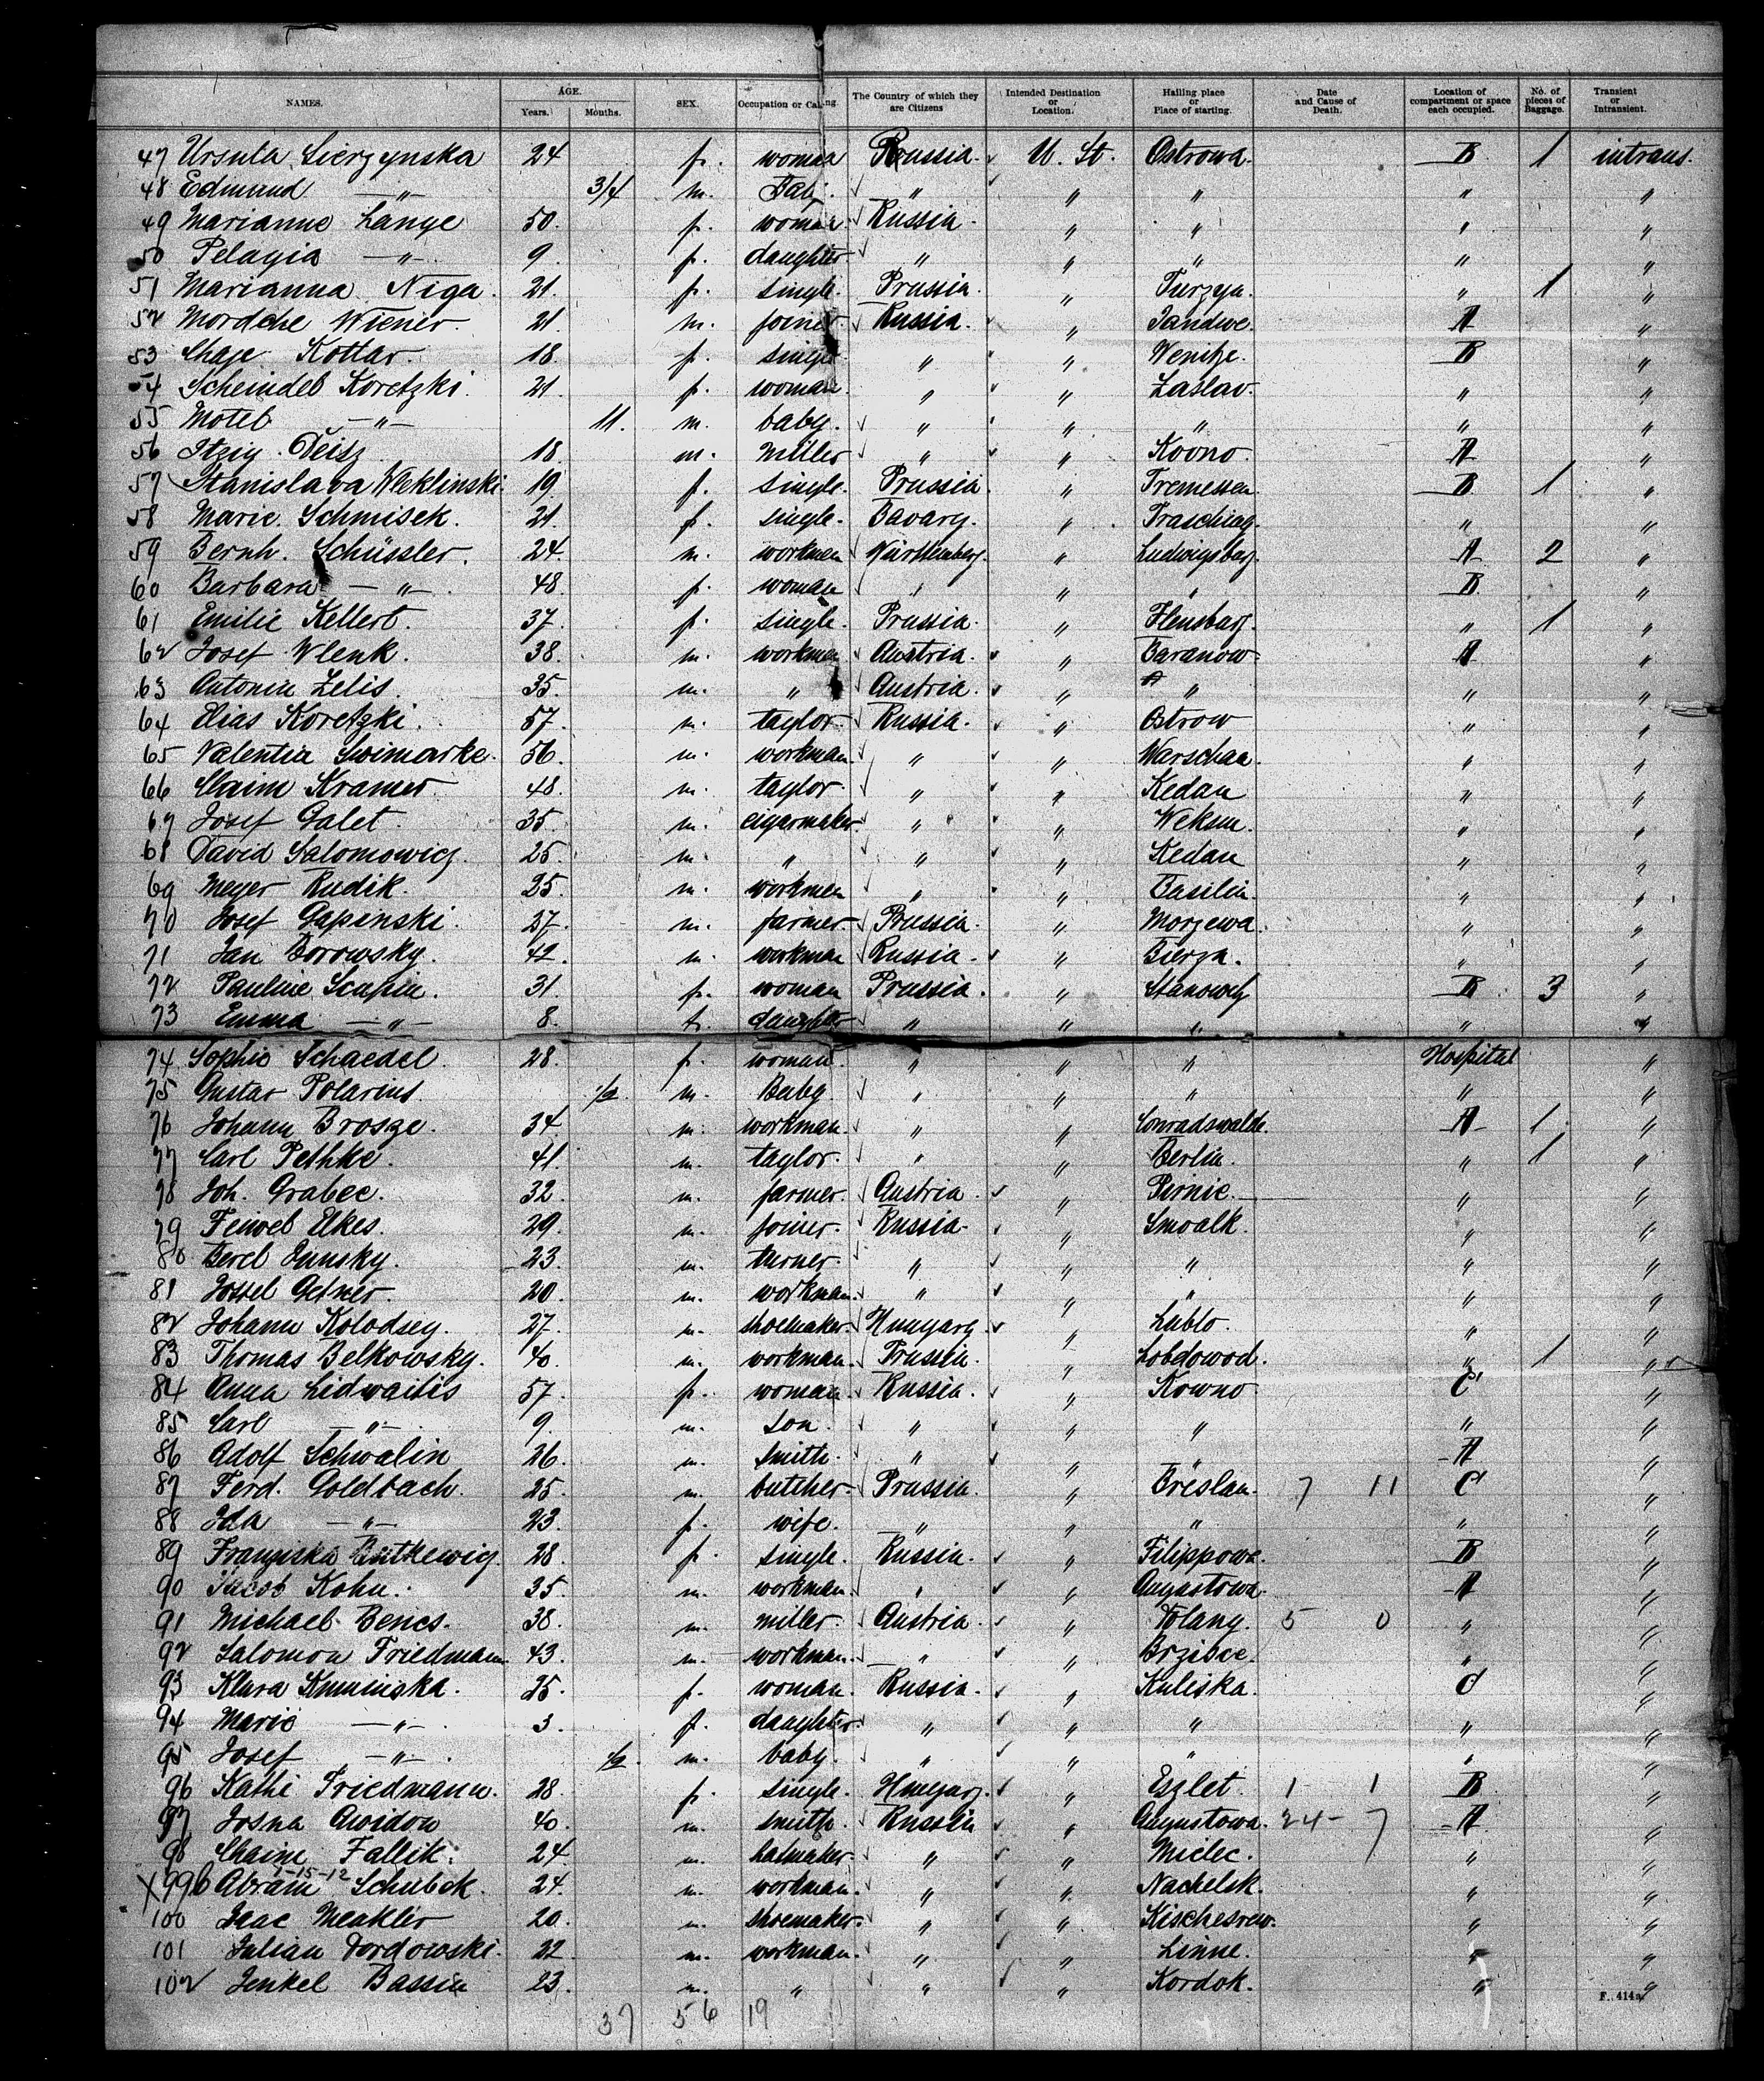 NAMES. AGE. Years. Months. SEX. Occupation or Calling The Country of which they are Citizens Intended Destination or Location. Hailing place or Place of starting. Date and Cause of Death. Location of compartment or space each occupied. No. of pieces of Baggage. Transient or Intransient.
47 Ursula Sierzynska 24 f. woman Prussia. U. St. Ostrowa. B. 1 intrans.
48 Edmund —"— 3/4 m. Baby. " " " " "
49 Marianne Lange 50. f. woman Russia. " " " "
50 Pelagia —"— 9. f. daughter " " " " "
51 Marianna Niga. 21. f. single. Prussia. " Turzyn. " 1 "
52 Mordche Wiener. 21. m. joiner. Russia. " Jandwe. A "
53 Chaje Kottar. 18. f. single " " Wenitze. B "
54 Scheindel Koretzki. 21. f. woman. " " Zaslav. " "
55 Motel —"— 11. m. baby. " " " " "
56 Itzig Deisz 18 m. Miller " " Kovno. A "
57 Stanislava Weklinski 19 f. single. Prussia. " Tremessen. B 1 "
58 Marie Schmisek. 21. f. single. Bavary. " Traschiag. " "
59 Bernh. Schüssler. 24. m. workmen Württemberg. " Ludwigsburg. A 2 "
60 Barbara —"—. 48. f. woman " " " B "
61 Emilie Kellert. 37. f. single. Prussia. " Flensburg. " 1 "
62 Josef Wlenk. 38. m. workmen Austria. " Baranow. A "
63 Antonin Zelis. 35. m. " Austria. " " " "
64 Elias Koretzki. 57. m. taylor. Russia. " Ostrow " "
65 Valentin Swimarke. 56. m. workman. " " Warschau. " "
66 Chaim Kramer 48. m. taylor. " " Kedan " "
67 Josef Galet. 35. m. cigarmaker. " " Weksn. " "
68 David Salomowicz. 25. m. " " " Kedan " "
69 Meyer Rudik. 25. m. workmen " " Basilin. " "
70 Josef Gapenski. 27. m. farmer. Prussia. " Morzewa. " "
71 Jan Borowsky. 42. m. workman Russia. " Bierza. " "
72 Pauline Scupin. 31. f. woman Prussia. " Stanowitz B. 3 "
73 Emma —"— 8. f. daughter " " " " "
74 Sophie Schaedel. 28. f. woman. " " " Hospital "
75 Gustav Polarins. 1/2. m. Baby. " " " " "
76 Johann Brosze. 34 m. workman. " " Conradswalde. A 1 "
77 Carl Pethke. 41. m. taylor. " " Berlin. " 1 "
78 Joh. Grabec. 32. m. farmer. Austria. " Pirnic. " "
79 Feiwel Elkes. 29. m. joiner. Russia. " Smoalk. " "
80 Berel Junsky. 23. m. turner. " " " " "
81 Jossel Getner. 20. m. workman. " " " " "
82 Johann Kolodsey. 27. m. shoemaker. Hungary. " Lublo. " "
83 Thomas Belkowsky. 40. m. workman. Prussia. " Lobdowod. " 1 "
84 Anna Lidwaitis 57. f. woman. Russia. " Kowno. C "
85 Carl —"— 9. m. son. " " " " "
86 Adolf Schwalin 26. m. smith. " " " A "
87 Ferd. Goldbach. 25. m. butcher. Prussia. " Breslau. 7 11 C "
88 Ida —"— 23. f. wife. " " " " "
89 Franziska Butkewicz 28. f. single. Russia. " Filippowa. B "
90 Jacob Kohn. 35. m. workman. " " Augustowa. A "
91 Michael Benes. 38. m. miller. Austria. " Tolany. 5 0 " "
92 Salomon Friedmann. 43. m. workman. " " Brzisce. " "
93 Klara Kmuinska. 25. f. woman. Russia. " Kuliska. C "
94 Marie —"—. 3. f. daughter. " " " " "
95 Josef —"—. 1/2. m. baby. " " " " "
96 Kathi Friedmann. 28. f. single. Hungary. " Eszlet. 1 1 B "
97 Josna Awidow 40. m. smith. Russia " Augustowa. 24- 7 A "
98 Chaim Fallik. 24 m. hatmaker. " " Mielec. " "
X 99 b Abram Schubek. 24. m. workman. " " Nachelsk. " "
2-15-12
100 Isac Meakler 20. m. shoemaker. " " Kischesrew. " "
101 Julian Dordowski. 22 m. workman. " " Linne. " "
102 Jenkel Bassin 23. m. " " " Kordok. " "
37 56 19
F. 414a